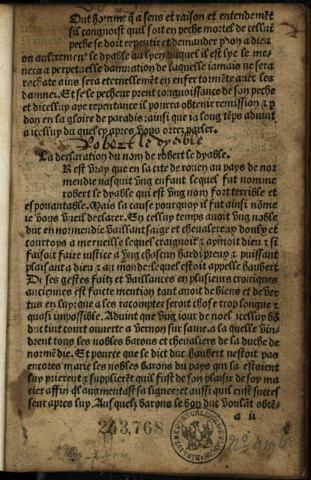 Out homme q̃ a sens et raison et entendemẽt
sil congnoist quil soit en peche mortel de cellui
peche se doit repentir et demander p̱don a dieu
on aultremẽt le dyable au lyen duquel il est lye le mes
nera a perpetuelle damnation de laquelle iamais ne sera
rachate ains sera eternellemẽt en enfer tormẽte auec les
damnez Et se le pecheur prent congnoissance de son peche
et dicelluy aye repentance il pourra obtenir remission ⁊ p̱
don en la gloire de paradis: ainsi que ia long tẽps aduint
a icelluy du quel cy apres vous orrez parler.
Robert le dyable
La declaration du nom de robert le dyable.
R est vray que en la cite de rouen au pays de nor
mendie nasquit vng enfant lequel fut nomme
robert le dyable qui est vng nom fort terrible et
espouantable. Mais la cause pourquoy il fut ainsi nõme
ie vous vueil declarer. En celluy temps auoit vng noble
duc en normendie vaillant saige et cheualereux doulx et
courtoys a merueille lequel craignoit ⁊ aymoit dieu ⁊ si
faisoit faire iustice a vng chascun hardi preux ⁊ puissant
plaisant a dieu ⁊ au monde: lequel estoit appelle haubert
De ses gestes faitz et vaillances en plusieurs croniques
anciennes est faicte mention tant auoit de biens et de ver
tus en luy: que a les racompter seroit chose trop longue ⁊
quasi impossible. Aduint que vng iour de noel icelluy hõ
duc tint court ouuerte a vernon sur saine a la quelle vin
drent tous les nobles barons et cheualiers de la duche de
normẽdie. Et pource que le dict duc haubert nestoit pas
encores marie les nobles barons du pays qui la estoient
luy prierent ⁊ supplierẽt quil fust de son plaisir de soy ma
rier affin q̃l augmentast sa lignee: et aussi quil eust succes
seur apres luy. Ausquelz barons le bon duc voulãt obtẽ
a ii
243,768